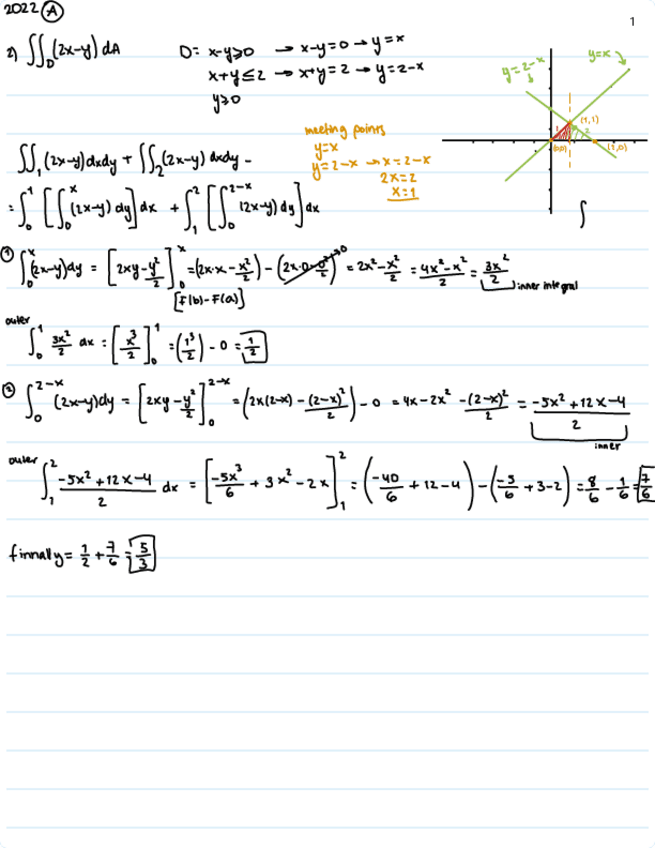 2022 (A)
1
2) ∬_D (2x-y) dA D= x-y≥0 → x-y=0 → y=x
x+y≤2 → x+y=2 → y=2-x
y≥0
y=2-x
y=x
(1,1)
1
2
(0,0)
(2,0)
meeting points
y=x
y=2-x → x=2-x
2x=2
x=1
∬_1 (2x-y) dxdy + ∬_2 (2x-y) dxdy -
= ∫_0^1 [∫_0^x (2x-y) dy] dx + ∫_1^2 [∫_0^{2-x} (2x-y) dy] dx
∫
① ∫_0^x (2x-y) dy = [2xy - y²/2]_0^x = (2x·x - x²/2) - (2x·0 - 0²/2)→0 = 2x² - x²/2 = (4x²-x²)/2 = 3x²/2 → inner integral
[F(b)-F(a)]
outer
∫_0^1 3x²/2 dx = [x³/2]_0^1 = (1³/2) - 0 = 1/2
② ∫_0^{2-x} (2x-y) dy = [2xy - y²/2]_0^{2-x} = (2x(2-x) - (2-x)²/2) - 0 = 4x - 2x² - (2-x)²/2 = (-5x²+12x-4)/2
inner
outer
∫_1^2 (-5x²+12x-4)/2 dx = [-5x³/6 + 3x² - 2x]_1^2 = (-40/6 + 12-4) - (-5/6 + 3-2) = 8/6 - 1/6 = 7/6
finnally = 1/2 + 7/6 = 5/3